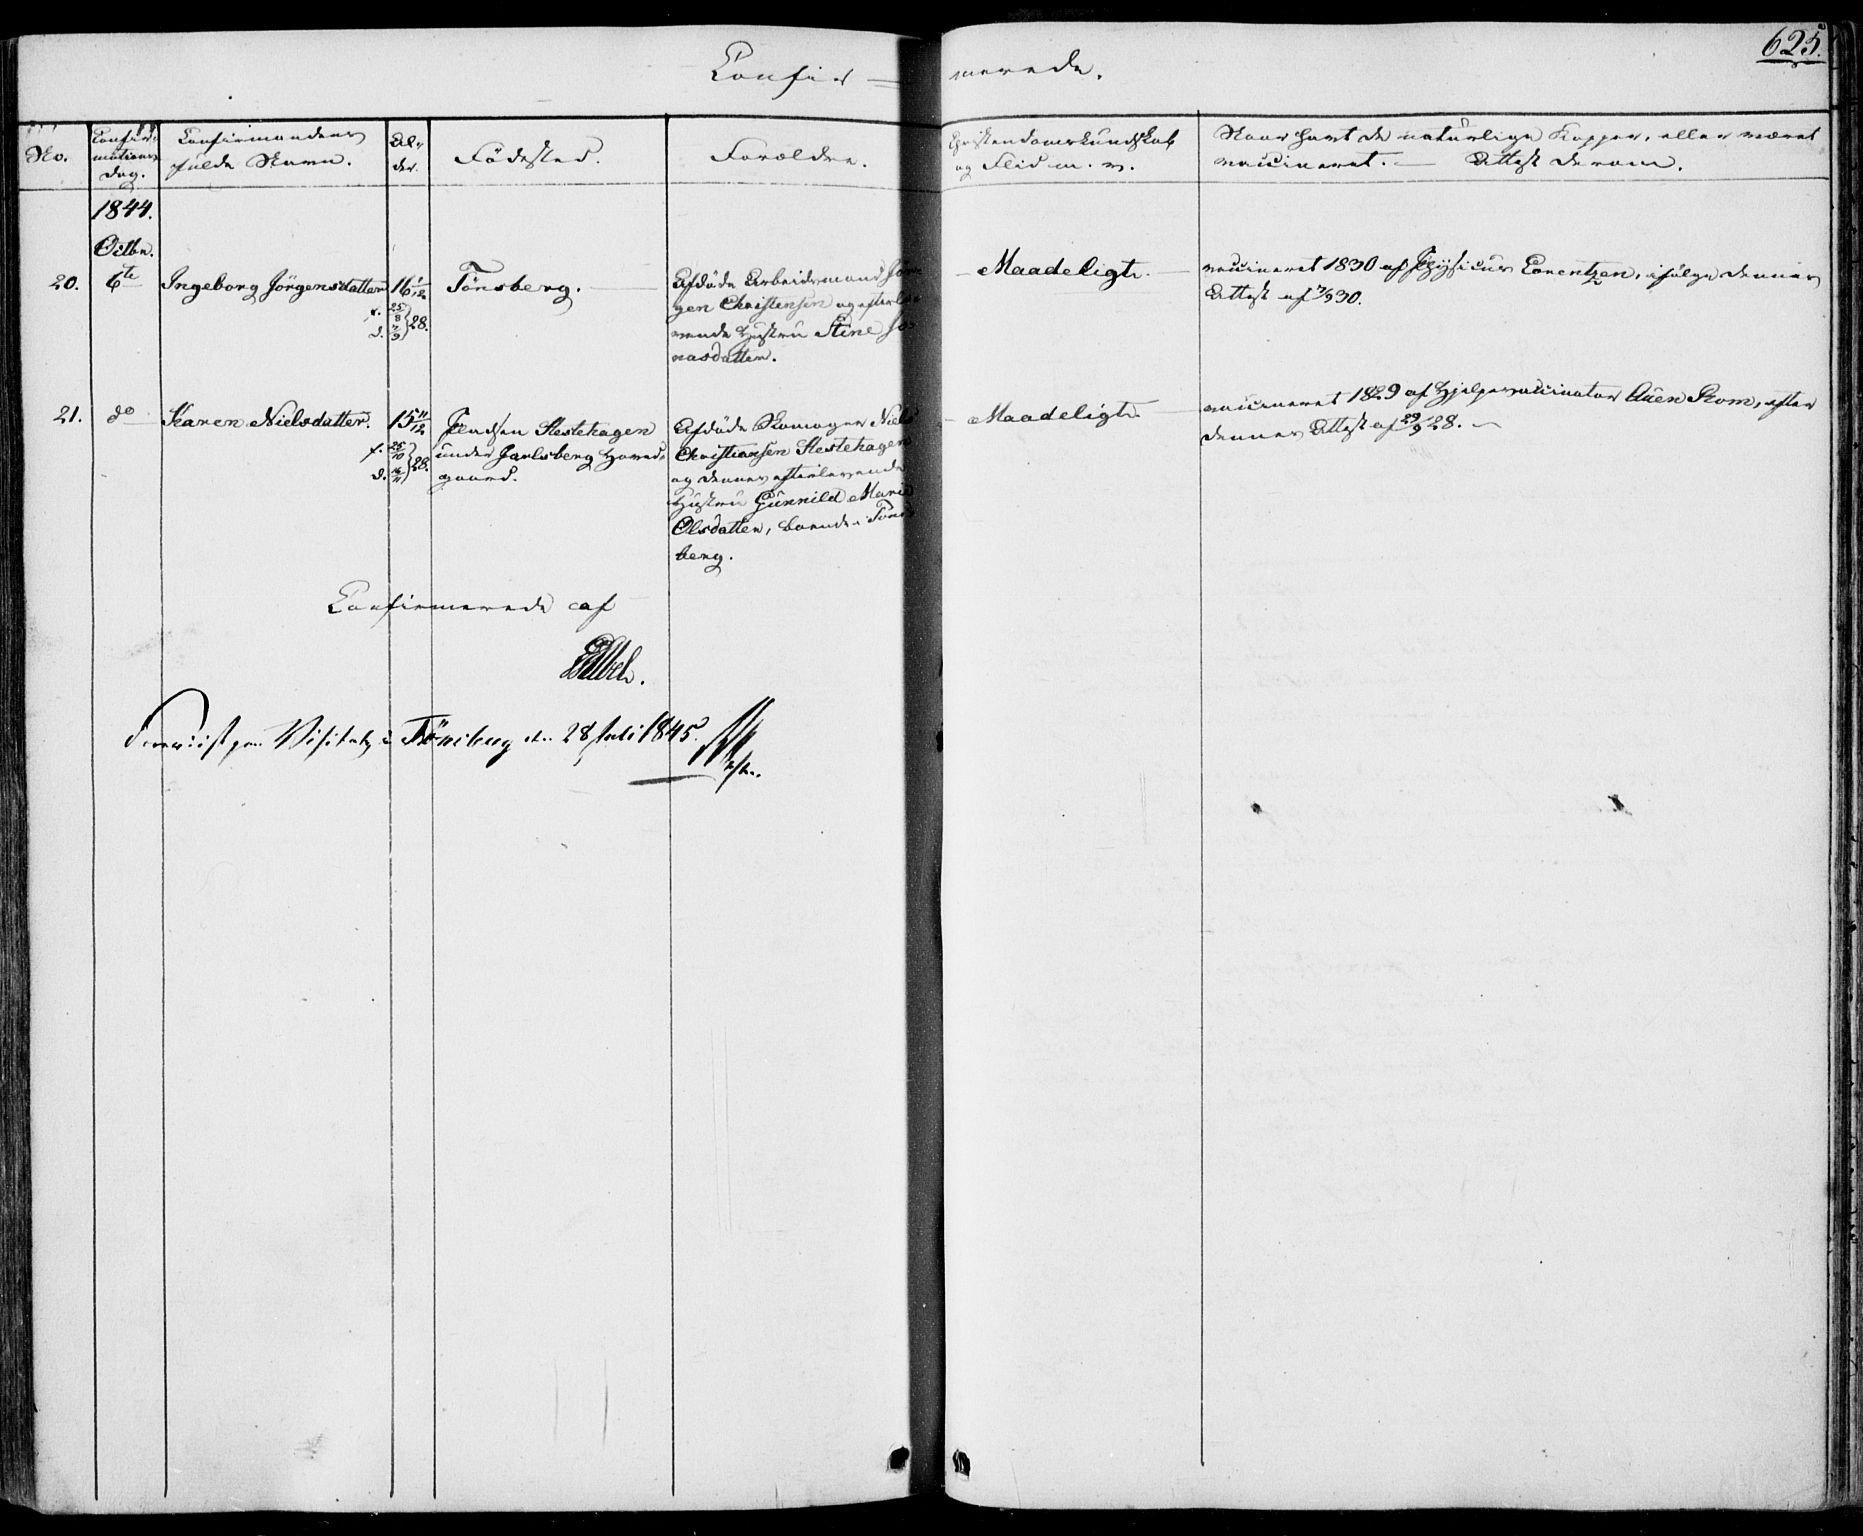 625.
Confir=merede.
No.
Confir-
mations
Dag.
Confirmandens
fulde Navn.
Al-
der.
Fødested.
Forældre.
Christendomskundskab
og Flid m. v.
Naar havt de naturlige Kopper, eller været
vaccineret. — Attest derom.
1844.
Octbr.
20.
6te
Ingeborg Jörgensdatter
16 1/12
f. 25/8
d. 7/9 } 28.
Tönsberg.
Afdøde Arbeidsmand Jør-
gen Christensen og efterle-
vende Hustru Stine Jo-
nasdatter.
Maadeligt.
vaccineret 1830 af Physicus Lorentzen, ifølge dennes
Attest af 7/9 30.
21.
do
Karen Nielsdatter.
15 11/12
f. 25/10
d. 16/11 } 28.
Pladsen Hestehagen
under Jarlsberg Hoved-
gaard.
Afdøde Skomager Niels
Christiansen Hestehagen
og dennes efterlevende
Hustru Gunnild Marie
Olsdatter, boende i Töns-
berg.
Maadeligt.
vaccineret 1829 af Hjelpevaccinator Auen Rom, efter
dennes Attest af 29/9 28.
Confirmerede af
Foreviist paa Visitats i Tönsberg den 28 Juli 1845.